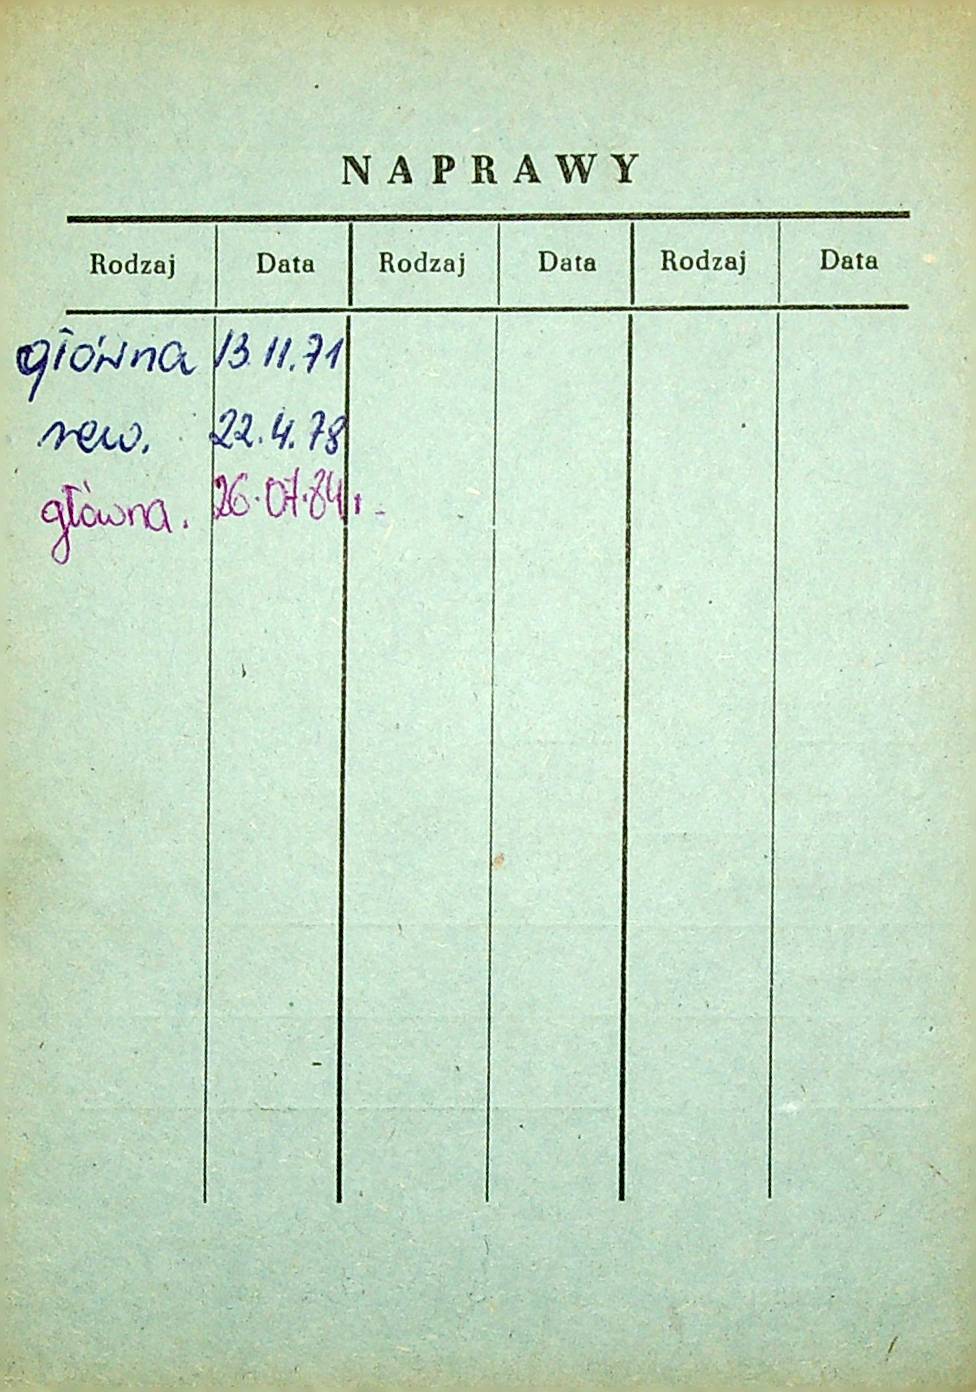 NAPRAWY
Rodzaj Data Rodzaj Data Rodzaj Data
główna 13.11.71
rew. 22.4.78
główna. 26.07.84r.